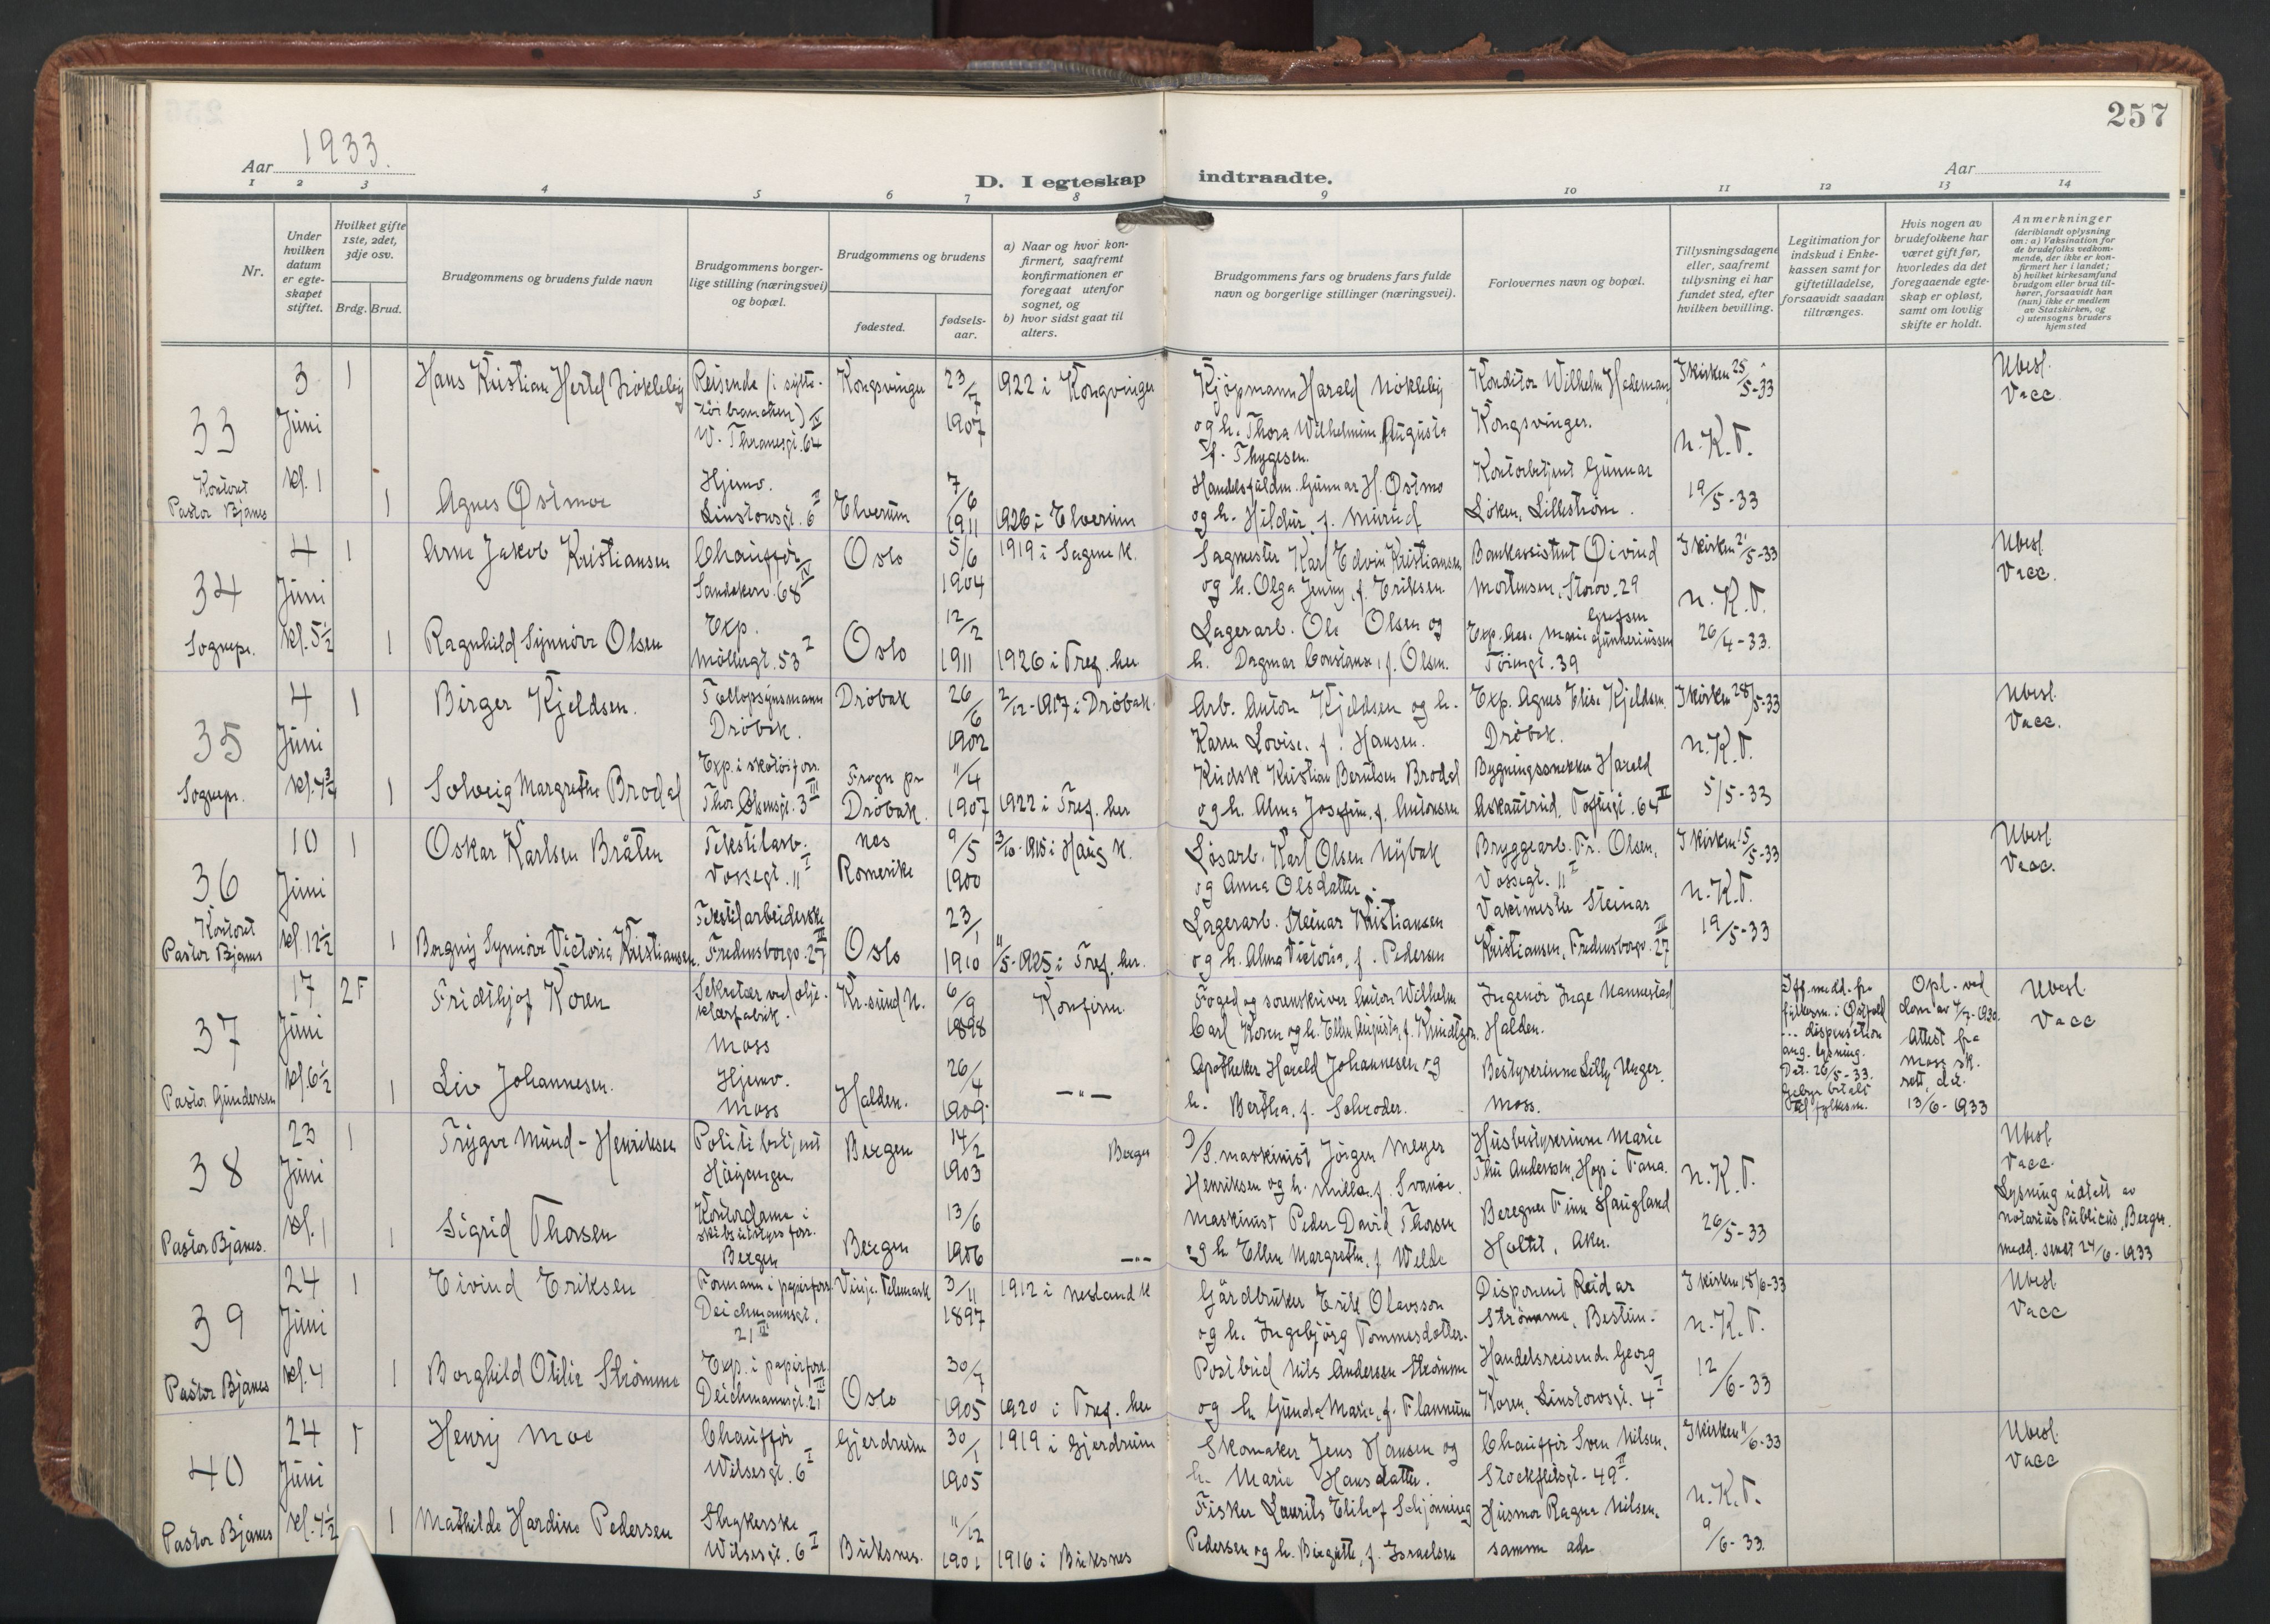 257
Aar 1933.
D. I egteskap indtraadte.
Aar
1 2 3 4 5 6 7 8 9 10 11 12 13 14
Nr.
Under hvilken datum er egteskapet stiftet.
Hvilket gifte 1ste, 2det, 3dje osv.
Brdg. Brud.
Brudgommens og brudens fulde navn
Brudgommens borgerlige stilling (næringsvei) og bopæl.
Brudgommens og brudens
fødested.
fødselsaar.
a) Naar og hvor konfirmert, saafremt konfirmationen er foregaat utenfor sognet, og
b) hvor sidst gaat til alters.
Brudgommens fars og brudens fars fulde navn og borgerlige stillinger (næringsvei).
Forlovernes navn og bopæl.
Tillysningsdagene eller, saafremt tillysning ei har fundet sted, efter hvilken bevilling.
Legitimation for indskud i Enkekassen samt for giftetilladelse, forsaavidt saadan tiltrænges.
Hvis nogen av brudefolkene har været gift før, hvorledes da det foregaaende egteskap er opløst, samt om lovlig skifte er holdt.
Anmerkninger
(deriblandt oplysning om: a) Vaksination for de brudefolks vedkommende, der ikke er konfirmert her i landet;
b) hvilket kirkesamfund brudgom eller brud tilhører, forsaavidt han (hun) ikke er medlem av Statskirken, og
c) utensogns bruders hjemsted
33
Kontoret
Pastor Bjanes
3 Juni kl. 1
1
Hans Kristian Hertel Nökleby
Reisende (i sytöibranchen)
W. Thranesgt. 64 IV
Kongsvinger
23/7 1907
1922 i Kongsvinger
Kjöpmann Harald Nökleby
og h. Thora Wilhelmine Augusta
f. Thygesen.
Konditor Wilhelm Hedemann
Kongsvinger.
I kirken 25/5-33
N.K.T.
19/5-33
Ubesl.
Vacc.
1
Agnes Østmoe
Hjemv.
Linstowsgt. 6 II
Elverum
7/6 1911
1926 i Elverum
Handelsfuldm. Gunnar H. Østmo
og h. Hildur f. Murud
Kontorbetjent Gunnar
Löken, Lilleström.
34
Sognepr.
4 Juni kl. 5½
1
Arne Jakob Kristiansen
Chauffør
Sandakerv. 68 IV
Oslo
5/6 1904
1919 i Sagene K.
Sagmester Karl Edvin Kristiansen
og h. Olga Jenny, f. Eriksen
Bankassistent Øivind
Mortensen, Storov. 29
Grefsen
I kirken 21/5-33
N.K.T.
26/4-33.
Ubesl.
Vacc.
1
Ragnhild Synnöve Olsen
Exp.
Möllergt. 53 2
Oslo
12/2 1911
1926 i Tref. her
Lagerarb. Ole Olsen og
h. Dagmar Constanse, f. Olsen.
Exp. Aas. Marie Gunneriussen
Töiengt. 39
35
Sognepr.
4 Juni kl. 4¾
1
Birger Kjeldsen.
Tollopsynsmann
Dröbak.
Dröbak
26/6 1902
2/12-1917 i Dröbak.
Arb. Anton Kjeldsen og h.
Karen Lovise, f. Hansen.
Exp. Agnes Elise Kjeldsen.
Dröbak.
I kirken 28/5-33
N.K.T.
5/5-33
Ubesl.
Vacc.
1
Solveig Margrethe Brodal
Exp. i skotöiforr.
Thor Olsensgt. 3 III
Frogn pr Dröbak.
11/4 1907
1922 i Tref. her
Kudsk Kristian Berntsen Brodal
og h. Alma Josefine, f. Antonsen
Bygningssnekker Harald
Askautrud. Toftesgt. 64 II
36
Kontoret
Pastor Bjanes
10 Juni kl. 12½
1
Oskar Karlsen Bråten
Tekstilarb.
Vossegt. 11 I
Nes Romerike
9/5 1900
3/6-1915 i Haug K.
Løsarb. Karl Olsen Nybak
og Anna Olsdatter.
Bryggearb. Fr. Olsen,
Vossegt. 11 I
I kirken 15/5-33
N.K.T.
19/5-33
Ubesl.
Vacc.
1
Borgny Synnöve Victoria Kristiansen.
Tekstilarbeiderske
Fredensborgv. 27 III
Oslo
23/1 1910
11/5-1925 i Tref. her.
Lagerarb. Steinar Kristiansen
og h. Alma Victoria, f. Pedersen
Vaktmester Steinar
Kristiansen, Fredensborgv. 27 III
37
Pastor Gundersen
17 Juni kl. 6½
2 F
Fridthjof Koren
Sekretær ved oljeklærfabrik.
Moss
Kr.sund N.
6/9 1898
Konfirm.
Foged og sorenskriver Anton Wilhelm
Carl Koren og h. Ellen Augusta, f. Knudtzon.
Ingeniör Inge Nannestad
Halden.
Iflg. medd. fra
fylkesm. i Østfold
... dispensation
ang. lysning.
Dat. 26/5-33.
Gebyr betalt
til fylkesm.
Opl. ved
dom av 4/7-1930.
Attest fra
Moss sk.
rett, dat.
13/6-1933
Ubesl.
Vacc
1
Liv Johannesen.
Hjemv.
Moss
Halden.
26/4 1909.
— " —
Apotheker Harald Johannesen og
h. Bertha, f. Schroder.
Bestyrerinne Lilly Unger,
Moss.
38
Pastor Bjanes.
23 Juni kl. 1
1
Trygve Mund-Henriksen
Politibetjent
Höyanger
Bergen
14/2 1903
Bergen
D/S. maskinist Jörgen Meyer
Henriksen og h. Milla, f. Svanöe.
Husbestyrerinne Marie
Thu Anderson, Hop i Fana.
N.K.T.
26/5-33
Ubesl.
Vacc.
Lysning utstett av
notarius Publicus, Bergen.
medd. sendt 24/6-1933
1
Sigrid Thorsen
Kontordame i
skibsutstyrsforr.
Bergen
Bergen
13/6 1906
— " —
Maskinist Peder David Thorsen
og h. Ellen Margrethe, f. Welde
Beregner Finn Haugland
Holtet, Aker.
39
Pastor Bjanes
24 Juni kl. 4
1
Eivind Eriksen
Formann i papirforr.
Deichmannsgt.
21 III
Vinje. Telemark
3/11 1897
1912 i Nesland K
Gårdbruker Erik Olavsson
og h. Ingebjörg Tommesdotter.
Disponent Reidar
Strömme, Bestun.
I kirken 18/6-33
N.K.T.
12/6-33
Ubesl
Vacc
1
Borghild Otilie Strömme
Exp. i papirforr.
Deichmannsgt. 21 III
Oslo
30/7 1905
1920 i Tref. her
Postbud Nils Andersen Strömme
og h. Gunda Marie, f. Flannum
Handelsreisende Georg
Koren, Linstowsgt. 4 I
40
Pastor Bjanes
24 Juni kl. 4½
1
Henry Moe
Chauffør
Wilsesgt. 6 I
Gjerdrum
30/1 1905
1919 i Gjerdrum
Skomaker Jens Hansen og
h. Marie Hansdatter.
Chauffør Sven Nilsen,
Stockfletsgt. 49 II.
I kirken 11/6-33
N.K.T.
9/6-33.
Ubesl.
Vacc
1
Mathilde Hardine Pedersen
Strykerske
Wilsesgt. 6 I
Buksnes.
11/12 1901
1916 i Buksnes
Fisker Laurits Elihof Schjönning
Pedersen og h. Birgitte, f. Israelsen
Husmor Ragna Nilsen,
samme adr